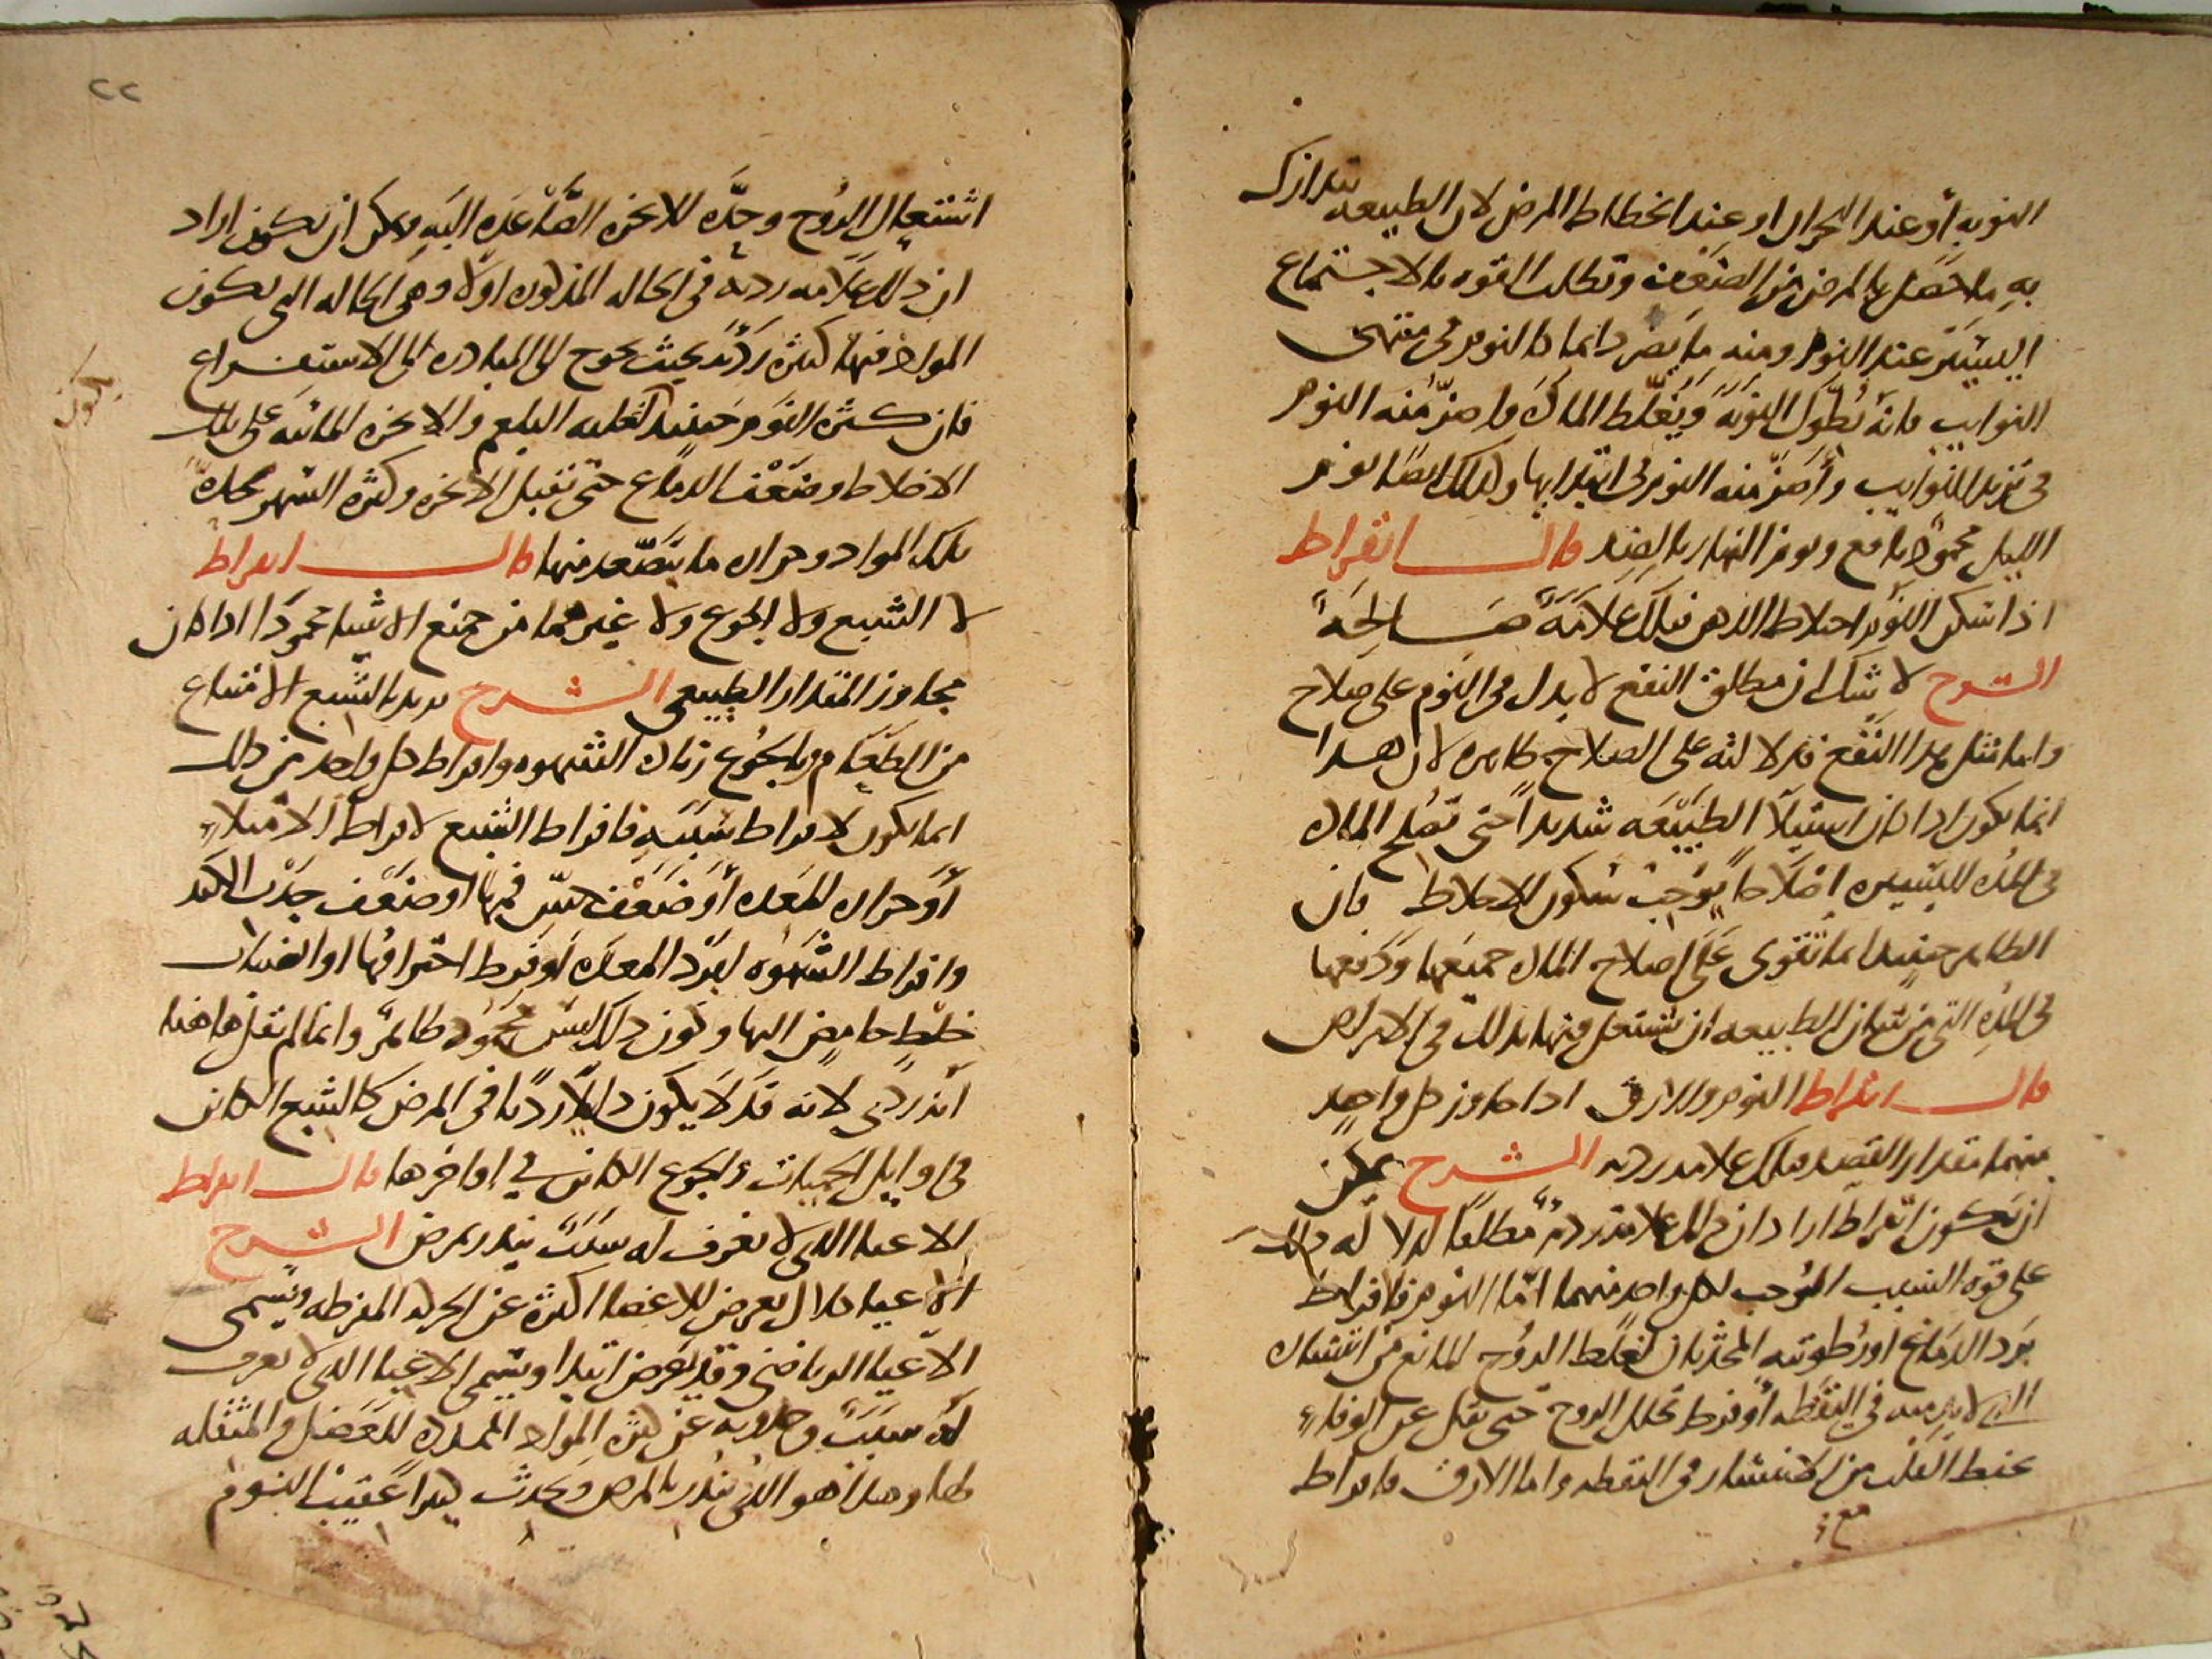 النوبه أو عند البحران او عند انحطاط المرض لان الطبيعه تتدارك
به ما حصل بالمرض من الضعف وتطلب القوه بالاجتماع
اليسير عند النوم ومنه ما يضر دايما كالنوم في منتهى
النوايب فانه يطول النوبه ويغلط الماده واضر منه النوم
في تزيد النوايب وأضر منه النوم في ابتدايها ولذلك ايضا نوم
الليل محمود نافع ونوم النهار بالضد قال ابقراط
اذا سكن النوم اختلاط الذهن فتلك علامة صالحة
الشرح لا شك ان مطلق النفع لا يدل في النوم على صلاح
واما مثل هذا النفع فدلالته على الصلاح ظاهره لان هذا
انما يكون اذا كان استيلا الطبيعه شديدا حتى تصلح الماده
في المده اليسيره اصلاحا يوجب سكون الاخلاط فان
الظاهر حينيذ انها تقوى على اصلاح الماده جميعها ودفعها
في المده التي من شان الطبيعه ان تشتغل فيها بذلك في الامراض
قال ابقراط النوم والارق اذا جاوز كل واحد
منهما مقدار القصد فتلك علامه رديه الشرح يمكن
ان يكون ابقراط اراد ان ذلك علامة رديه مطلقا لدلاله ذلك
على قوه السبب الموجب لكل واحد منهما اما النوم فافراط
برد الدماغ او رطوبته المحدثان لغلظ الروح المانع من انتشاره
الذي لا بد منه في اليقظه أو فرط تحلل الروح حتى تقل عن الوفاء
عنط القلب من الانتشار في اليقظه واما الارق فافراط
مع
٢٢
اشتعال الروح وحده للابخره الصاعده اليه ويمكن ان يكون اراد
ان ذلك علامه رديه في الحاله المذكوره اولا وهي الحاله التي يكون
المواد فيها كثيره رديه بحيث يحوج الى المبادره الى الاستفراغ
فان كثره النوم حينيذ لغلبه البلغم والابخره المائيه على تلك
الاخلاط وضعف الدماغ حتى تقبل الابخره وكثره السهر لحده
تلك المواد وحراره ما يتصعد منها قال ابقراط
لا الشبع ولا الجوع ولا غيرهما من جميع الاشيا محمودا اذا كان
مجاوز المقدار الطبيعي الشرح يريد بالشبع الامتناع
من الطعام وبالجوع زياده الشهوه وافراط كل واحد من ذلك
انما يكون لافراط سببه فافراط الشبع لافراط الامتلاء
أو حراره المعده أو ضعف حس فمها او ضعف جذب الكبد
وافراط الشهوه لبرد المعده أو فرط احتراقها او انصباب
خلط حامض اليها وكون ذلك ليس بمحمود ظاهر وانما لم يقل هاهنا
انه ردي لانه قد لا يكون دليلا رديا في المرض كالشبع الكاين
في اوايل الحميات والجوع الكاين في اواخرها قال ابقراط
الاعيا الذي لا يعرف له سبب ينذر بمرض الشرح
الاعيا كلال يعرض للاعضا اكثره عن الحركه المفرطه ويسمى
الاعيا الرياضي وقد يعرض ابتدا ويسمى الاعيا الذي لا يعرف
له سبب وحدوثه عن كثره المواد الممدده للعضل والمثقله
لها وهذا هو الذي ينذر بالمرض ويحدث كثيرا عقيب النوم
يكون